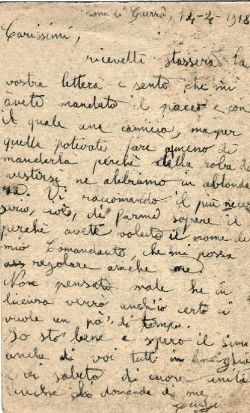 zona di Guerra, 14-4-1918
Carissimi,
ricevetti stassera la
vostra lettera e sento che mi
avete mandato il pacco e con
il quale una camicia, ma per
quella potivate fare ameno di
mandarla perchè della roba da
vestirsi ne abbiamo in abbonda
Vi raccomando il più neces
sario, cioè, di farmi sapere il
perchè avete voluto il nome del
mio Comandante che mi possa
regolare anche me
Non pensate male che in
licenza verrò anch'io certo ci
vuole un pò di tempo.
Io sto bene e spero il simile
anche di voi tutti in famiglia
vi saluto di cuore
domande di me